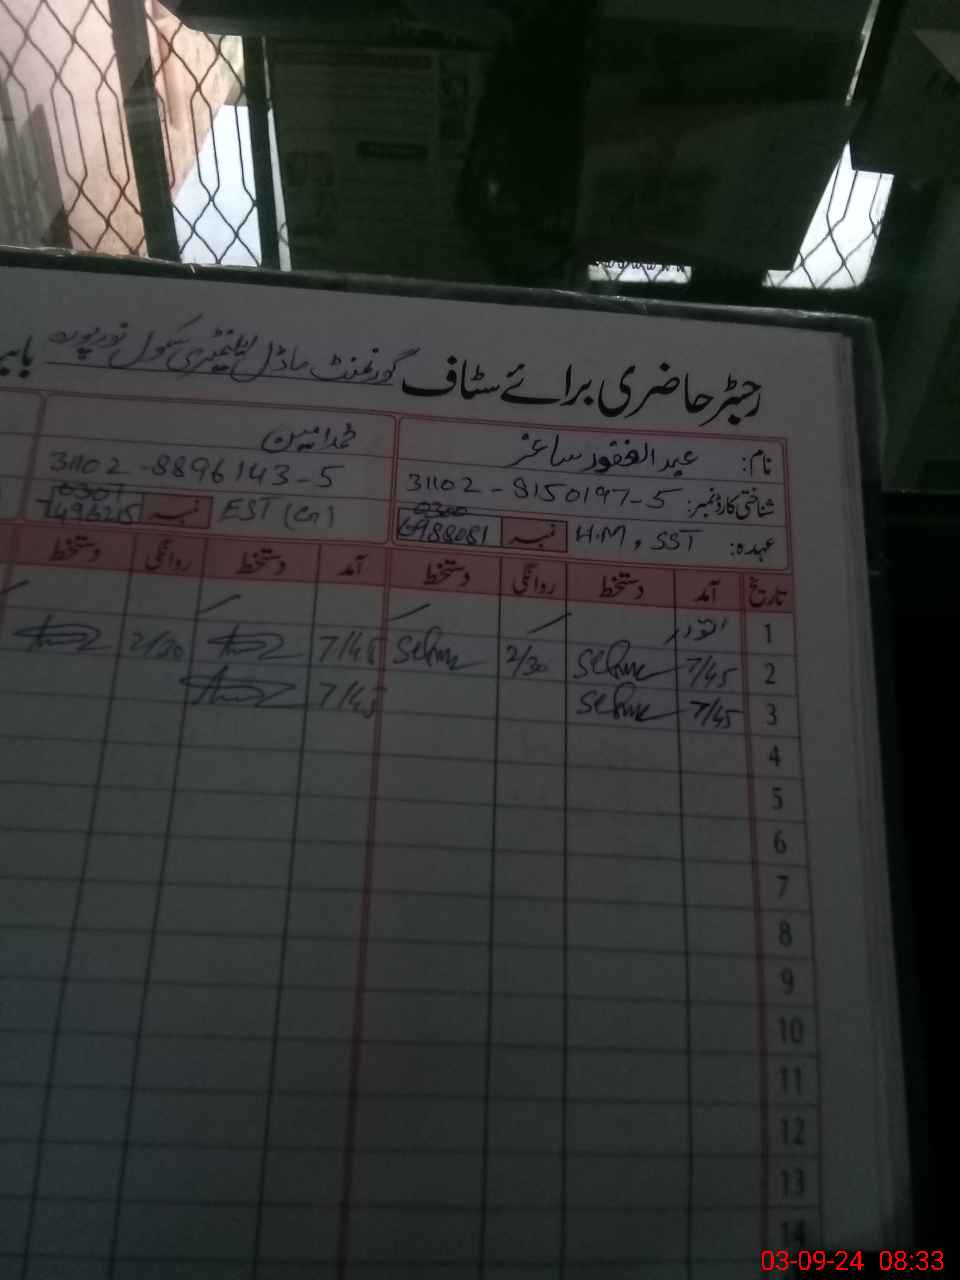 رجسٹر حاضری برائے سٹاف گورنمنٹ ماڈل ایلیمنٹری سکول نورپورہ
نام: عبدالغفور ساغر
شناختی کارڈ نمبر: 31102-8150197-5
عہدہ: H.M, SST نمبر 0300 6988081
محمد امین
31102-8896143-5
EST (en) نمبر 0307 7496215
تاریخ آمد دستخط روانگی دستخط آمد دستخط روانگی دستخط
1 اتوار
2 7/45 2/30 7/45 2/30
3 7/45 7/45
4
5
6
7
8
9
10
11
12
13
14
03-09-24 08:33